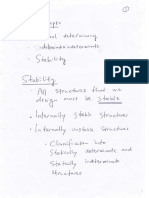 1
Stability
Stability
- All structures that we
design must be Stable
- Internally Stable Structures
- Internally unstable Structures
- Classification into
Statically determinate and
Statically indeterminate
Structures